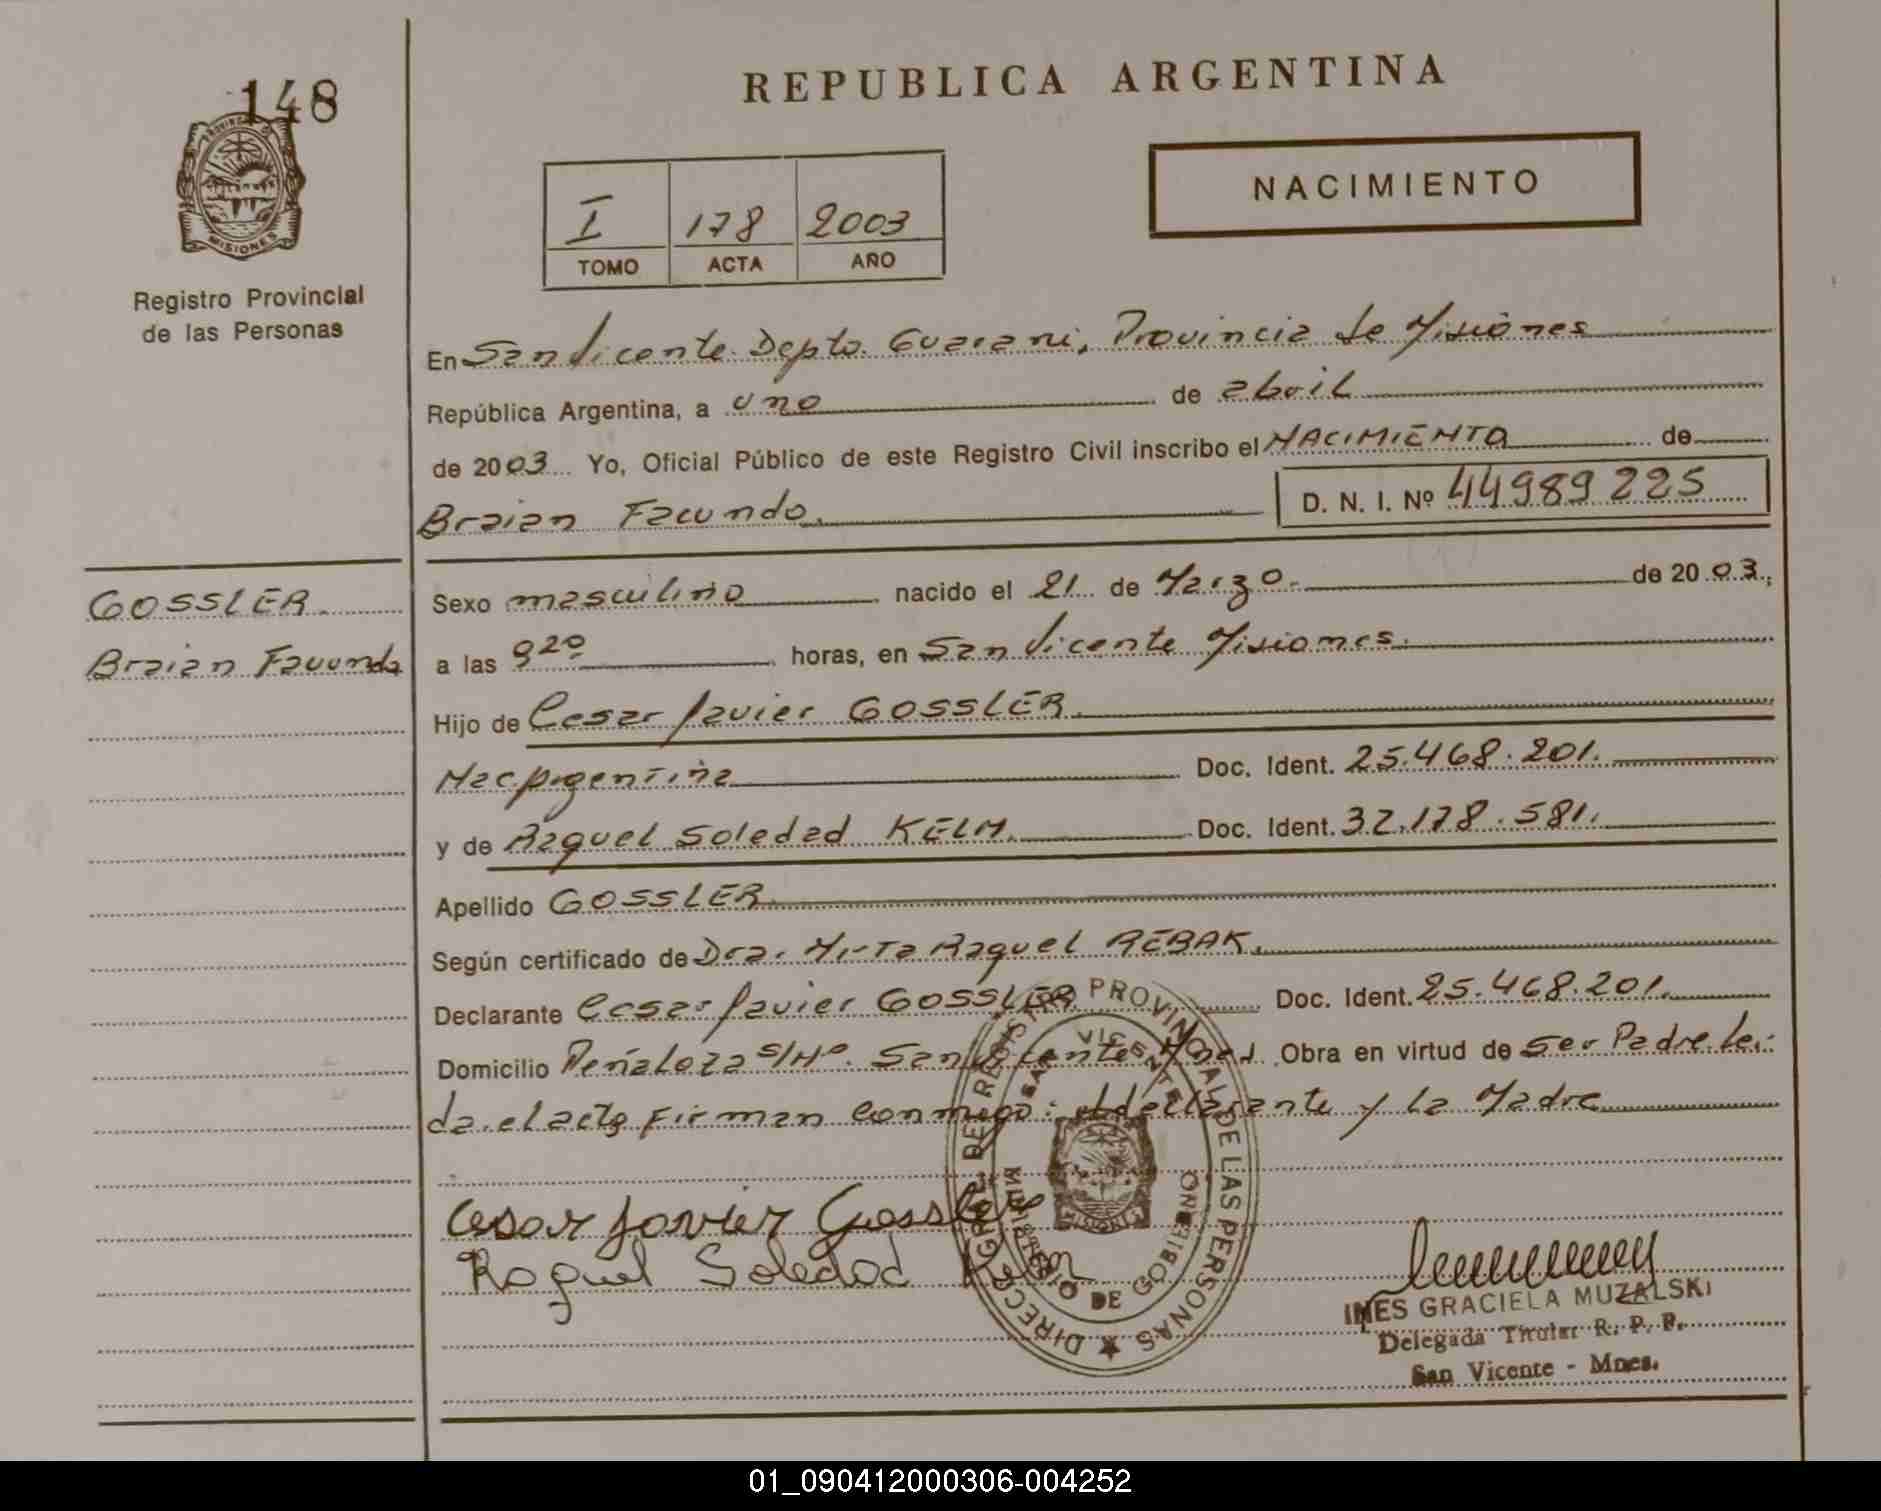 148
REPUBLICA ARGENTINA
PROVINCIA DE
MISIONES
Registro Provincial
de las Personas
I 178 2003
TOMO ACTA AÑO
NACIMIENTO
En San Vicente Depto. Guarani, Provincia de Misiones
República Argentina, a uno de abril
de 2003 Yo, Oficial Público de este Registro Civil inscribo el NACIMIENTO de
Braian Facundo. D. N. I. Nº 44989225
GOSSLER.
Braian Facundo
Sexo masculino nacido el 21 de Marzo. de 2003.;
a las 9²⁰ horas, en San Vicente Misiones.
Hijo de Cesar Javier GOSSLER.
Nac. Argentina Doc. Ident. 25.468.201.
y de Raquel Soledad KELM. Doc. Ident. 32.178.581.
Apellido GOSSLER.
Según certificado de Dra. Mirta Raquel REBAK.
Declarante Cesar Javier GOSSLER Doc. Ident. 25.468.201.
Domicilio Peñaloza S/Nº. San Vicente Mnes. Obra en virtud de ser Padre. Leí-
da. el acta firman conmigo: el declarante y la Madre
Cesar Javier Gossler
Raquel Soledad Kelm
DIRECC. GRAL. DEL REGISTRO PROVINCIAL DE LAS PERSONAS
SAN VICENTE
MISIONES
MINISTERIO DE GOBIERNO
INES GRACIELA MUZALSKI
Delegada Titular R. P. P.
San Vicente - Mnes.
01_090412000306-004252